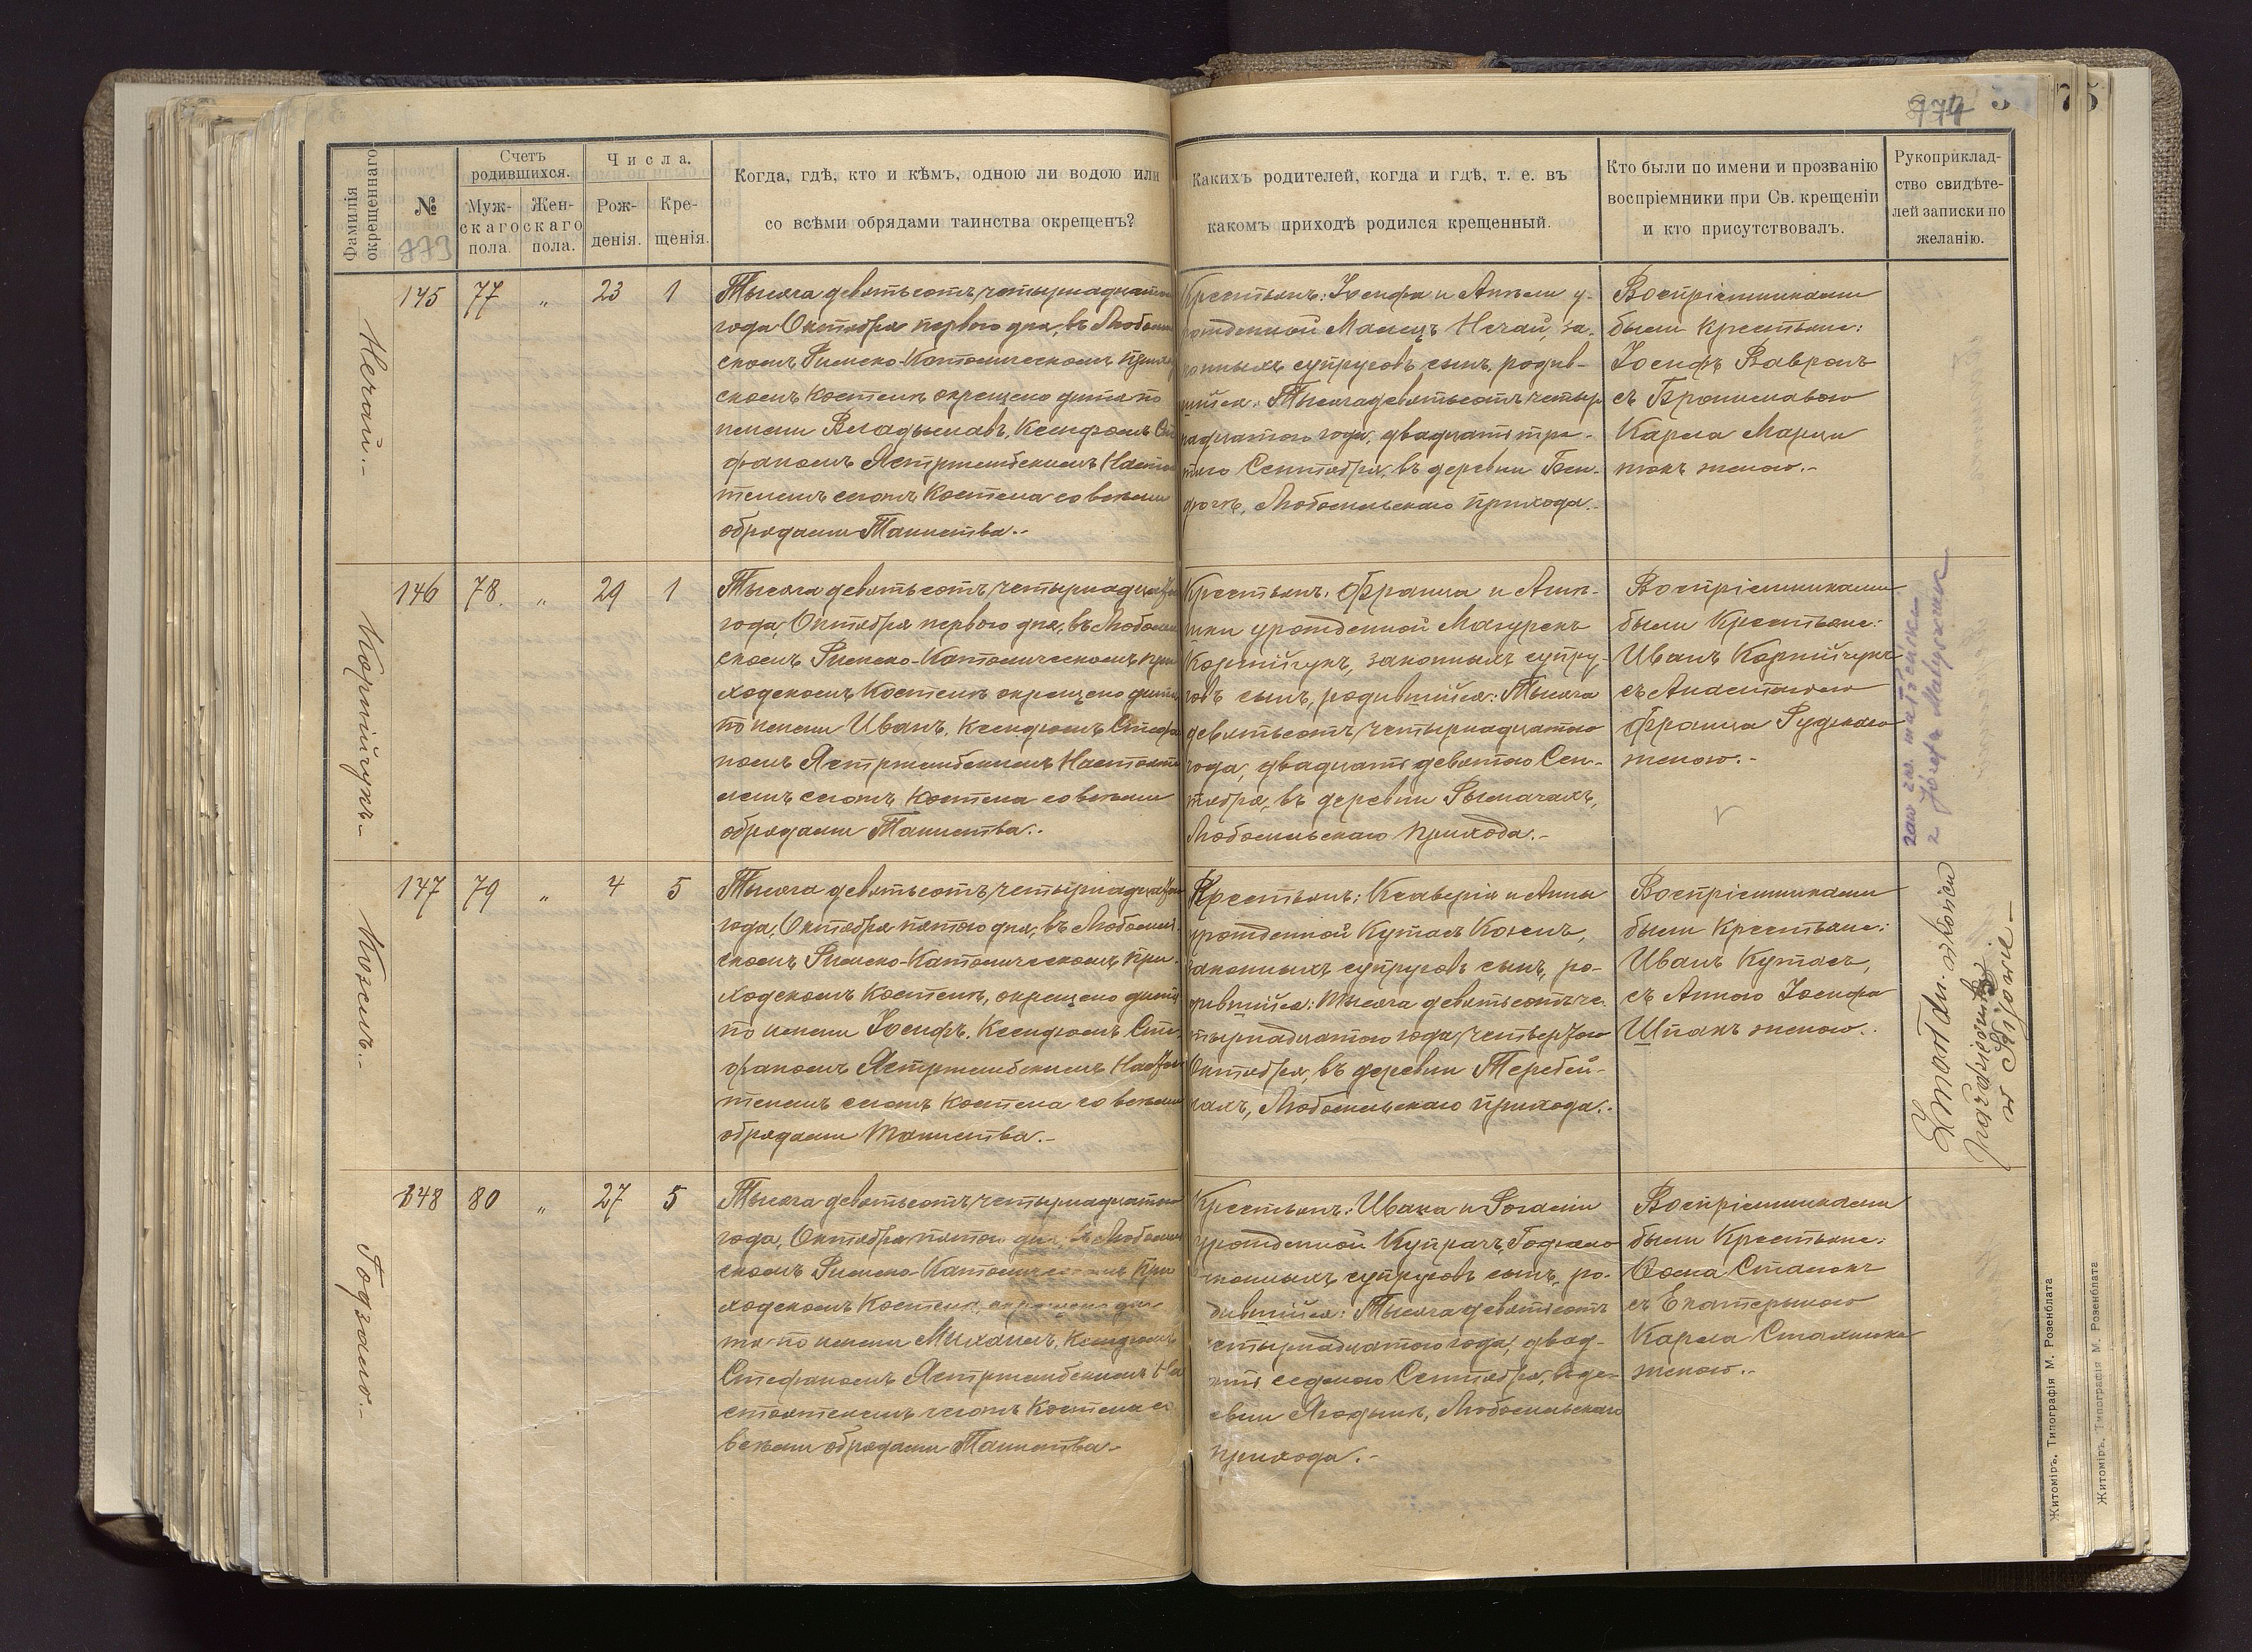 75
774
Фамилія окрещеннаго
№
Счетъ родившихся.
Мужскаго пола.
Женскаго пола.
Числа.
Рожденія.
Крещенія.
Когда, гдѣ, кто и кѣмъ, одною ли водою или
со всѣми обрядами таинства окрещенъ?
Какихъ родителей, когда и гдѣ, т. е. въ
какомъ приходѣ родился крещенный.
Кто были по имени и прозванію
воспріемники при Св. крещеніи
и кто присутствовалъ.
Рукоприклад-
ство свидѣте-
лей записки по
желанію.
Нечай.-
145 77 „ 23 1
Тысяча девятьсотъ четырнадцатого
года Октября перваго дня, въ Любомль
скомъ Римско-Католическомъ Приход
скомъ Костелѣ окрещено дитя по
имени Владыславъ, Ксендзомъ Сте
фаномъ Ястржембскимъ Настоя
телемъ сего Костела со всѣми
обрядами Таинства.-
Крестьянъ: Іосифа и Анели у-
рожденной Малецъ Нечай, за-
конныхъ супруговъ сынъ, родив-
шійся: Тысяча девятьсотъ четыр
надцатого года, двадцать тре-
тяго Сентября, въ деревни
Любомльскаго прихода.-
Воспріемниками
были Крестьяне:
Іосифъ Вавракъ
съ Брониславою
Карла Марци
нюкъ женою.-
Корнійчукъ.-
146 78. „ 29 1
Тысяча девятьсотъ четырнадцатого
года, Октября перваго дня, въ Любомль
скомъ Римско-Католическомъ При
ходскомъ Костелѣ окрещено дитя
по имени Иванъ, Ксендзомъ Стефа
номъ Ястржембскимъ Настояте
лемъ сего Костела со всѣми
обрядами Таинства.-
Крестьянъ: Франца и
урожденной Мазурекъ
Корнійчукъ, законныхъ супру-
говъ сынъ, родившійся: Тысяча
девятьсотъ четырнадцатого
года, двадцать девятого Сен-
тября, въ деревни Рымачахъ,
Любомльскаго прихода.-
Воспріемниками
были Крестьяне:
Иванъ Корнійчукъ
съ Анастазіею
Франца Рудскаго
женою.-
zaw zw. małżeński
z Józefą
Козелъ.-
147 79 „ 4 5
Тысяча девятьсотъ четырнадцатого
года, Октября пятого дня, въ Любомль
скомъ Римско-Католическомъ При-
ходскомъ Костелѣ, окрещено дитя
по имени Іосифъ, Ксендзомъ Сте-
фаномъ Ястржембскимъ Настоя
телемъ сего Костела со всѣми
обрядами Таинства.-
Крестьянъ: Ксаверія и Анны
урожденной Кутасъ Козелъ,
законныхъ супруговъ сынъ, ро-
дившійся: Тысяча девятьсотъ че-
тырнадцатого года, четвертого
Октября, въ деревни Теребей-
кахъ, Любомльскаго прихода.-
Воспріемниками
были Крестьяне:
Иванъ Кутасъ,
съ Анною Іосифа
Шпакъ женою.-
Zmarł dn.
października
w Kijowie-
148 80 „ 27 5
Тысяча девятьсотъ четырнадцатого
года, Октября пятого дня, въ Любомль
скомъ Римско-Католическомъ При
ходскомъ Костелѣ, окрещено ди-
тя по имени Михаилъ, Ксендзомъ
Стефаномъ Ястржембскимъ На
стоятелемъ сего Костела со
всѣми обрядами Таинства.-
Крестьянъ: Ивана и Розаліи
урожденной Купрачъ,
конныхъ супруговъ сынъ, ро-
дившійся: Тысяча девятьсотъ
четырнадцатого года, двад-
цать седьмого Сентября, въ де-
ревни Ягодынѣ, Любомльскаго
прихода.-
Воспріемниками
были Крестьяне:
Осипа
съ Екатерыною
Карла
женою.-
Житоміръ, Типографія М. Розенблата
Житоміръ, Типографія М. Розенблата